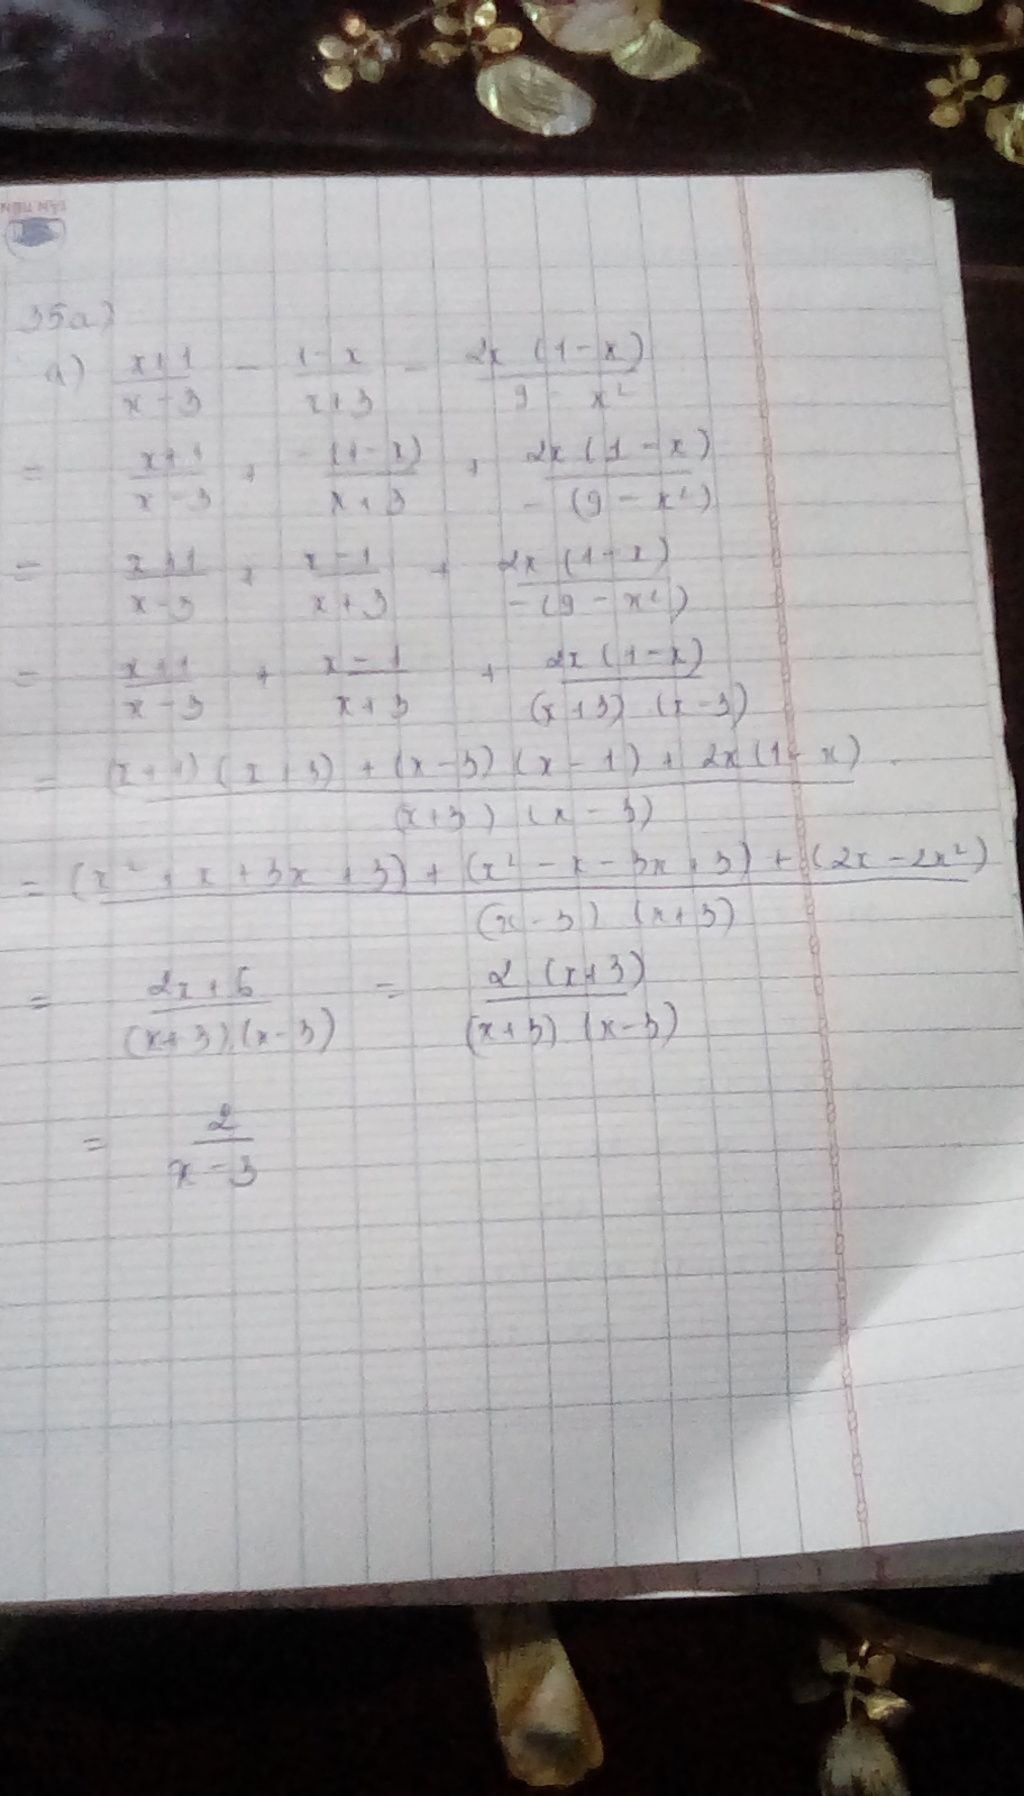 35a)
a) \frac{x+1}{x-3} - \frac{1-x}{x+3} - \frac{2x(1-x)}{9-x²}
= \frac{x+1}{x-3} + \frac{-(1-x)}{x+3} + \frac{2x(1-x)}{-(9-x²)}
= \frac{x+1}{x-3} + \frac{x-1}{x+3} + \frac{2x(1-x)}{-(9-x²)}
= \frac{x+1}{x-3} + \frac{x-1}{x+3} + \frac{2x(1-x)}{(x+3)(x-3)}
= \frac{(x+1)(x+3)+(x-3)(x-1)+2x(1-x)}{(x+3)(x-3)}
= \frac{(x²+x+3x+3)+(x²-x-3x+3)+(2x-2x²)}{(x-3)(x+3)}
= \frac{2x+6}{(x+3).(x-3)} = \frac{2(x+3)}{(x+3)(x-3)}
= \frac{2}{x-3}